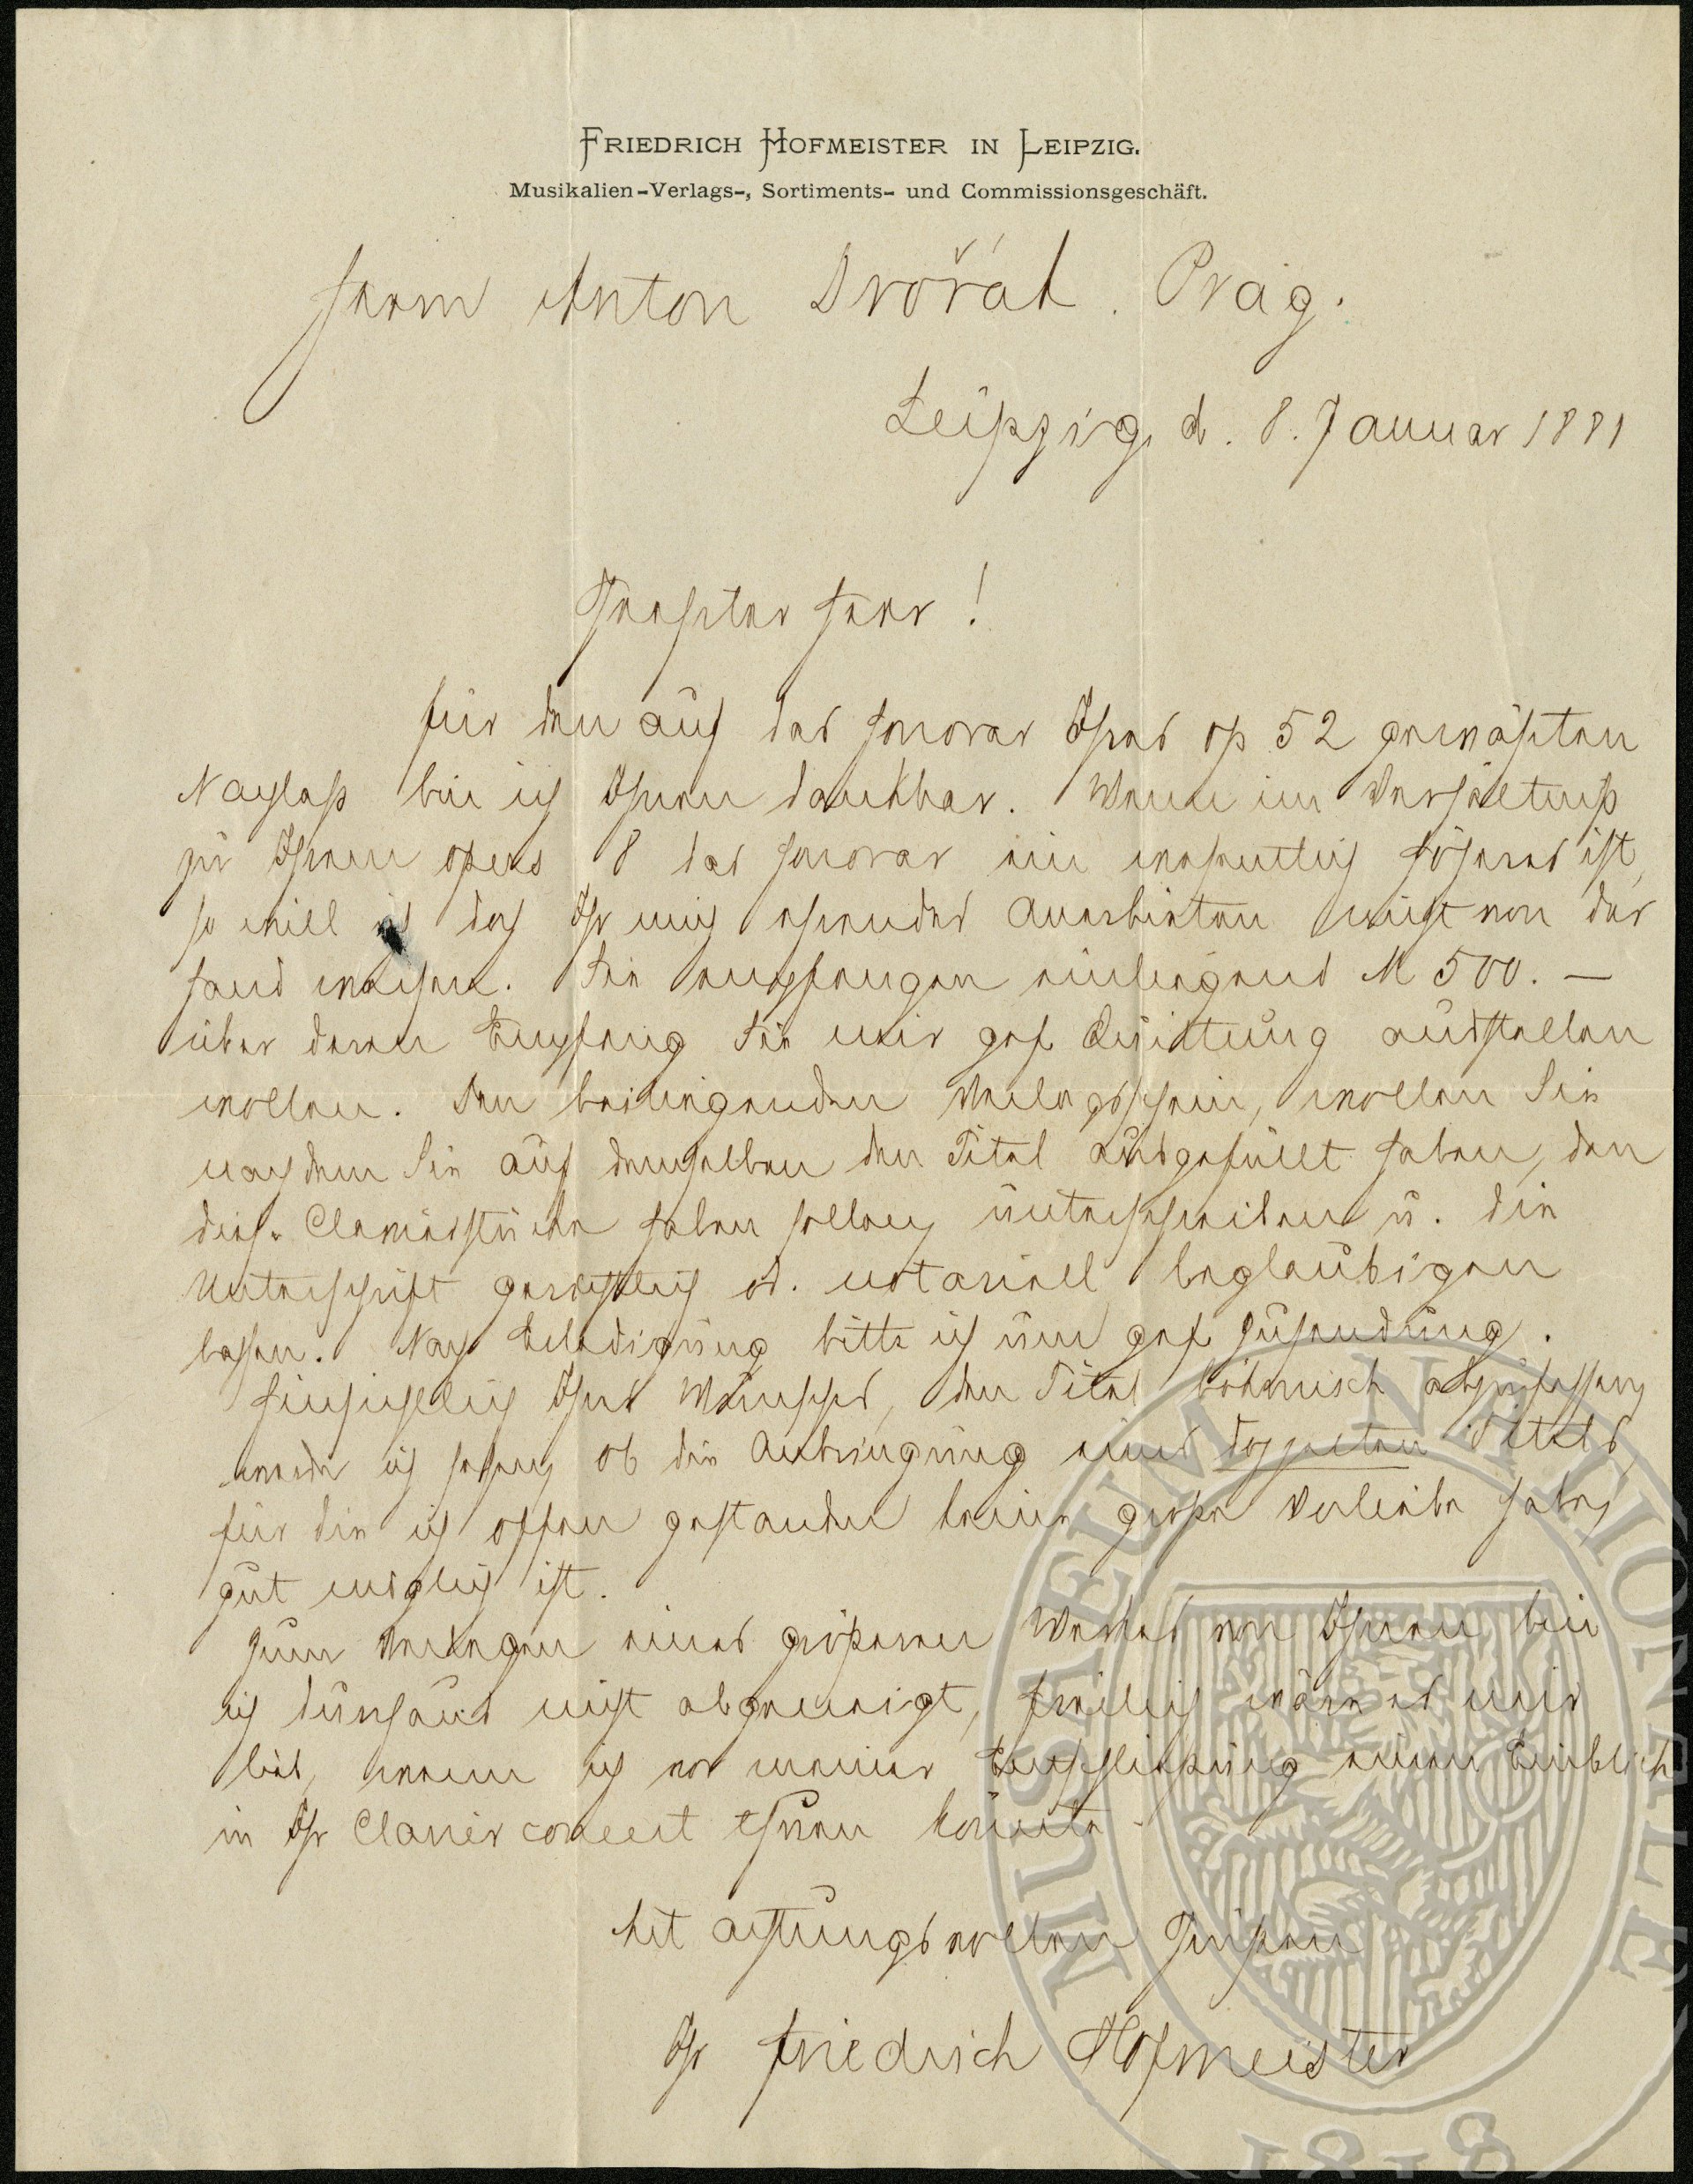 FRIEDRICH HOFMEISTER IN LEIPZIG.
Musikalien-Verlags-, Sortiments- und Commissionsgeschäft.
Herrn Anton Dvořák. Prag.
Leipzig, d. 8. Januar 1881
Geehrter Herr!
für den auf das Honorar Ihres op 52 gewährten
Nachlaß bin ich Ihnen dankbar. Wenn im Verhältniß
zu Ihrem opus 8 das Honorar ein wesentlich höheres ist,
so will ich doch Ihr mich ehrendes Anerbieten nicht von der
Hand weisen. Sie empfangen einliegend M 500. —
über deren Empfang Sie mir gef. Quittung ausstellen
wollen. Den beiliegenden Verlagsschein, wollen Sie
nachdem Sie auf demselben den Titel ausgefüllt haben, den
diese Clavierstücke haben sollen, unterschreiben u. die
Unterschrift gerichtlich od. notariell beglaubigen
lassen. Nach Erledigung bitte ich um gef. Zusendung.
Hinsichtlich Ihres Wunsches, den Titel böhmisch abzufassen,
werde ich sehen, ob die Anbringung eines doppelten Titels,
für die ich offen gestanden keine große Vorliebe habe,
gut möglich ist.
Zum Verlegen eines größeren Werkes von Ihnen bin
ich durchaus nicht abgeneigt, freilich wäre es mir
lieb, wenn ich vor meiner Entschließung einen Einblick
in Ihr Clavierconcert thuen könnte.
Mit achtungsvollen Grüßen
Ihr Friedrich Hofmeister
MUSAEUM NATIONALE
1818